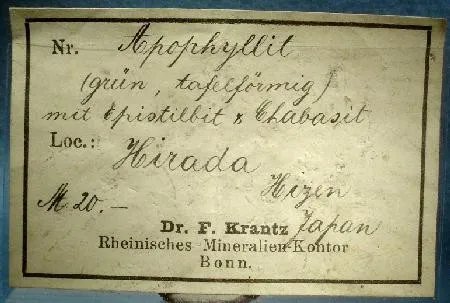 Nr. Apophyllit
(grün, tafelförmig)
mit Epistilbit & Chabasit
Loc.: Hirada
Hizen
M 20.-
Japan
Dr. F. Krantz
Rheinisches Mineralien-Kontor
Bonn.